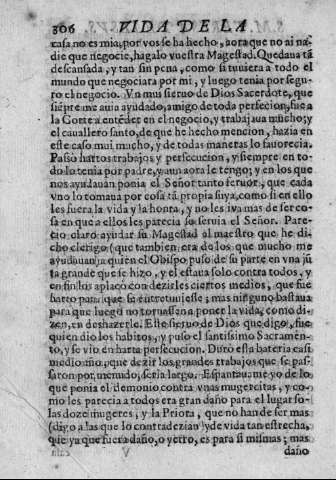 306 VIDA DE LA
casa no es mia, por vos se ha hecho, aora que no ai na-
die que negocie, hagalo vuestra Magestad. Quedaua tã
descansada, y tan sin pena, como si tuuiera a todo el
mundo que negociara por mi, y luego tenia por segu-
ro el negocio. Vn mui sieruo de Dios Sacerdote, que
siẽpre me auia ayudado, amigo de toda perfecion, fue a
la Corte a entẽder en el negocio, y trabajaua mucho; y
el cauallero santo, de que he hecho mencion, hazia en
este caso mui mucho, y de todas maneras lo fauorecia.
Passò hartos trabajos y persecucion, y siempre en to-
do lo tenia por padre, y aun aora le tengo; y en los que
nos ayudauan ponia el Señor tanto feruor, que cada
vno lo tomaua por cosa tã propia suya, como si en ello
les fuera la vida y la honra, y no les iva mas de ser co-
sa en que a ellos les parecia se seruia el Señor. Pare-
cio claro ayudar su Magestad al maestro que he di-
cho clerigo (que tambien era de los que mucho me
ayudauan) a quien el Obispo puso de su parte en vna jũ
ta grande que se hizo, y el estaua solo contra todos, y
en fin los aplacò con dezirles ciertos medios, que fue
harto para que se entretuuiesse; mas ninguno bastaua
para que luego no tornassen a poner la vida, como di-
zen, en deshazerle. Este sieruo de Dios que digo, fue
quien dio los habitos, y puso el santissimo Sacramẽ-
to, y se vio en harta persecucion. Durò esta bateria casi
medio año, que dezir los grandes trabajos que se pas-
saron por menudo, seria largo. Espantauame yo de lo
que ponia el demonio contra vnas mugercitas, y co-
mo les parecia a todos era gran daño para el lugar so-
las doze mugeres, y la Priora, que no han de ser mas
(digo a las que lo contradezian) y de vida tan estrecha,
que ya que fuera daño, o yerro, es para si mismas; mas
V daño